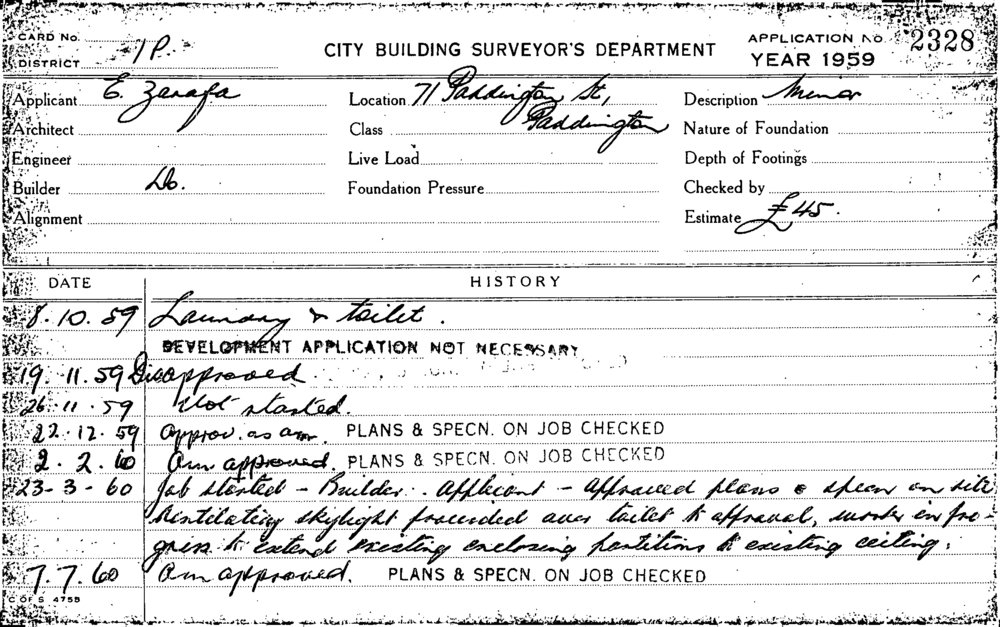 CARD No. 1P. CITY BUILDING SURVEYOR'S DEPARTMENT APPLICATION No. 2328
DISTRICT YEAR 1959
Applicant E. Zarafa Location 71 Paddington St, Description Minor
Architect Class Paddington Nature of Foundation
Engineer Live Load Depth of Footings
Builder Do. Foundation Pressure Checked by
Alignment Estimate £45.
DATE HISTORY
8.10.59 Laundry & toilet.
DEVELOPMENT APPLICATION NOT NECESSARY
19.11.59 Disapproved
26.11.59 Not started.
22.12.59 Approv. as am. PLANS & SPECN. ON JOB CHECKED
2.2.60 Am approved. PLANS & SPECN. ON JOB CHECKED
23-3-60 Job started - Builder.. Applicant - Approved plans & specn on site
Ventilating skylight provided over toilet to approval, works in pro-
gress to extend existing enclosing partitions to existing ceiling.
7.7.60 Am approved. PLANS & SPECN. ON JOB CHECKED
C OF S 4755